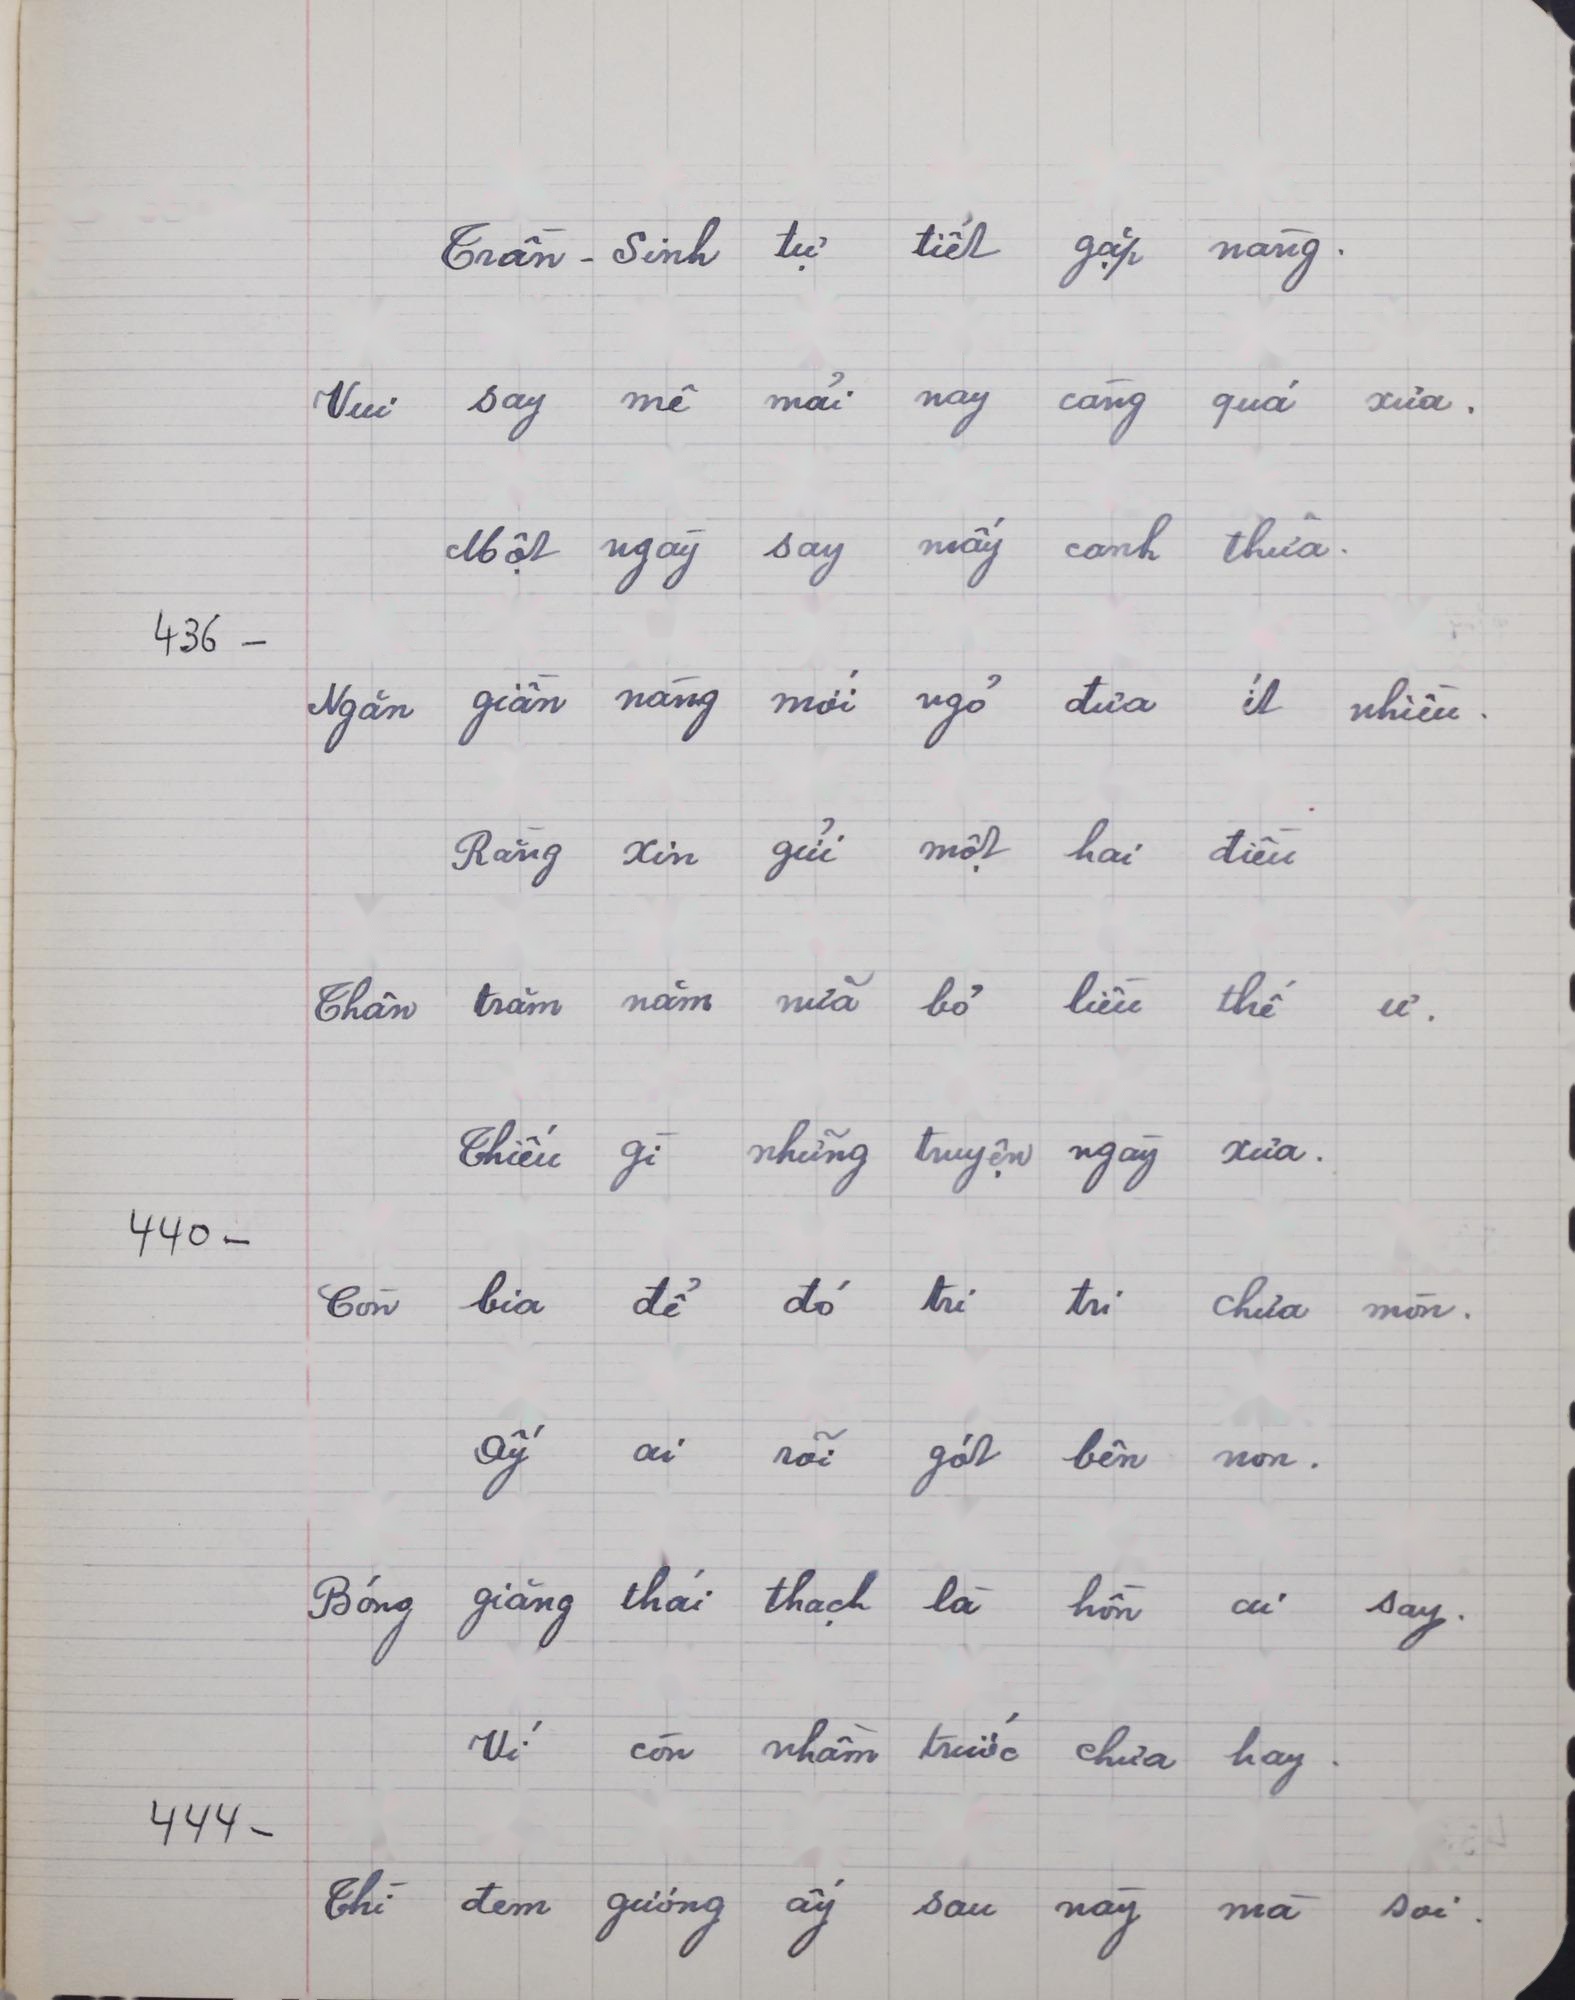 Trần - Sinh tự tiết gặp nàng.
Vui say mê mải nay càng quá xưa.
Một ngày say mấy canh thừa.
436 -
Ngăn giần nàng mới ngỏ đưa ít nhiều.
Rằng xin gửi một hai điều
Thân trăm năm nữa bỏ liều thế ư.
Thiếu gì những truyện ngày xưa.
440 -
Còn bia để đó tri tri chửa mòn.
Ấy ai rõi gót bên non.
Bóng giăng thái thạch là hồn ai say.
Ví còn nhầm trước chưa hay.
444 -
Thì đem gương ấy sau này mà soi.